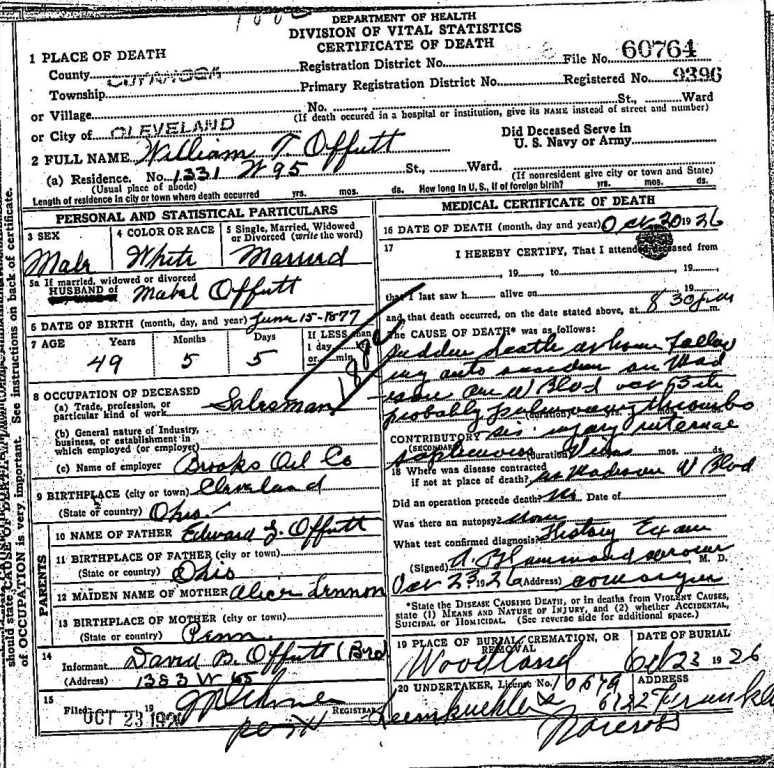 DEPARTMENT OF HEALTH
DIVISION OF VITAL STATISTICS
CERTIFICATE OF DEATH
1 PLACE OF DEATH
County CUYAHOGA Registration District No. File No. 60764
Township Primary Registration District No. Registered No. 9396
or Village No. St., Ward
(If death occured in a hospital or institution, give its NAME instead of street and number)
or City of CLEVELAND
Did Deceased Serve in
U. S. Navy or Army
2 FULL NAME William T. Offutt
(a) Residence. No. 1331 W 95 St., Ward.
(Usual place of abode) (If nonresident give city or town and State)
Length of residence in city or town where death occurred yrs. mos. ds. How long in U. S., if of foreign birth? yrs. mos. ds.
PERSONAL AND STATISTICAL PARTICULARS
3 SEX 4 COLOR OR RACE 5 Single, Married, Widowed
or Divorced (write the word)
Male White Married
5a If married, widowed or divorced
HUSBAND of Mabel Offutt
6 DATE OF BIRTH (month, day, and year) June 15-1877
7 AGE Years Months Days If LESS than
1 day
or min
49 5 5
8 OCCUPATION OF DECEASED
(a) Trade, profession, or
particular kind of work Salesman
(b) General nature of Industry,
business, or establishment in
which employed (or employer)
(c) Name of employer Brooks Oil Co
9 BIRTHPLACE (city or town) Cleveland
(State or country) Ohio
PARENTS
10 NAME OF FATHER Edward Offutt
11 BIRTHPLACE OF FATHER (city or town)
(State or country) Ohio
12 MAIDEN NAME OF MOTHER Alice Lennon
13 BIRTHPLACE OF MOTHER (city or town)
(State or country) Penn.
14
Informant David B. Offutt (Bro)
(Address) 1383 W 65
15
Filed OCT 23 1926 19 Registrar
MEDICAL CERTIFICATE OF DEATH
16 DATE OF DEATH (month, day and year) Oct 20 1926
17
I HEREBY CERTIFY, That I attended deceased from
19 to 19
that I last saw h alive on 19
and that death occurred, on the date stated above, at 8 30 pm
The CAUSE OF DEATH* was as follows:
Sudden death at home follow
ing auto accident on Mad
ison Ave W Blvd Oct 5th
probably pulmonary thrombo
sis. injury internal
CONTRIBUTORY
(SECONDARY)
saphenous veins
18 Where was disease contracted
if not at place of death? Madison W Blvd
Did an operation precede death? No Date of
Was there an autopsy? None
What test confirmed diagnosis? History Exam
(Signed) M. D.
Oct 23 1926 (Address)
*State the DISEASE CAUSING DEATH, or in deaths from VIOLENT CAUSES,
state (1) MEANS AND NATURE OF INJURY, and (2) whether ACCIDENTAL,
SUICIDAL or HOMICIDAL. (See reverse side for additional space.)
19 PLACE OF BURIAL, CREMATION, OR
REMOVAL
DATE OF BURIAL
Woodland Oct 23 1926
20 UNDERTAKER, License No. ADDRESS
should state CAUSE OF DEATH
of OCCUPATION is very important. See instructions on back of certificate.